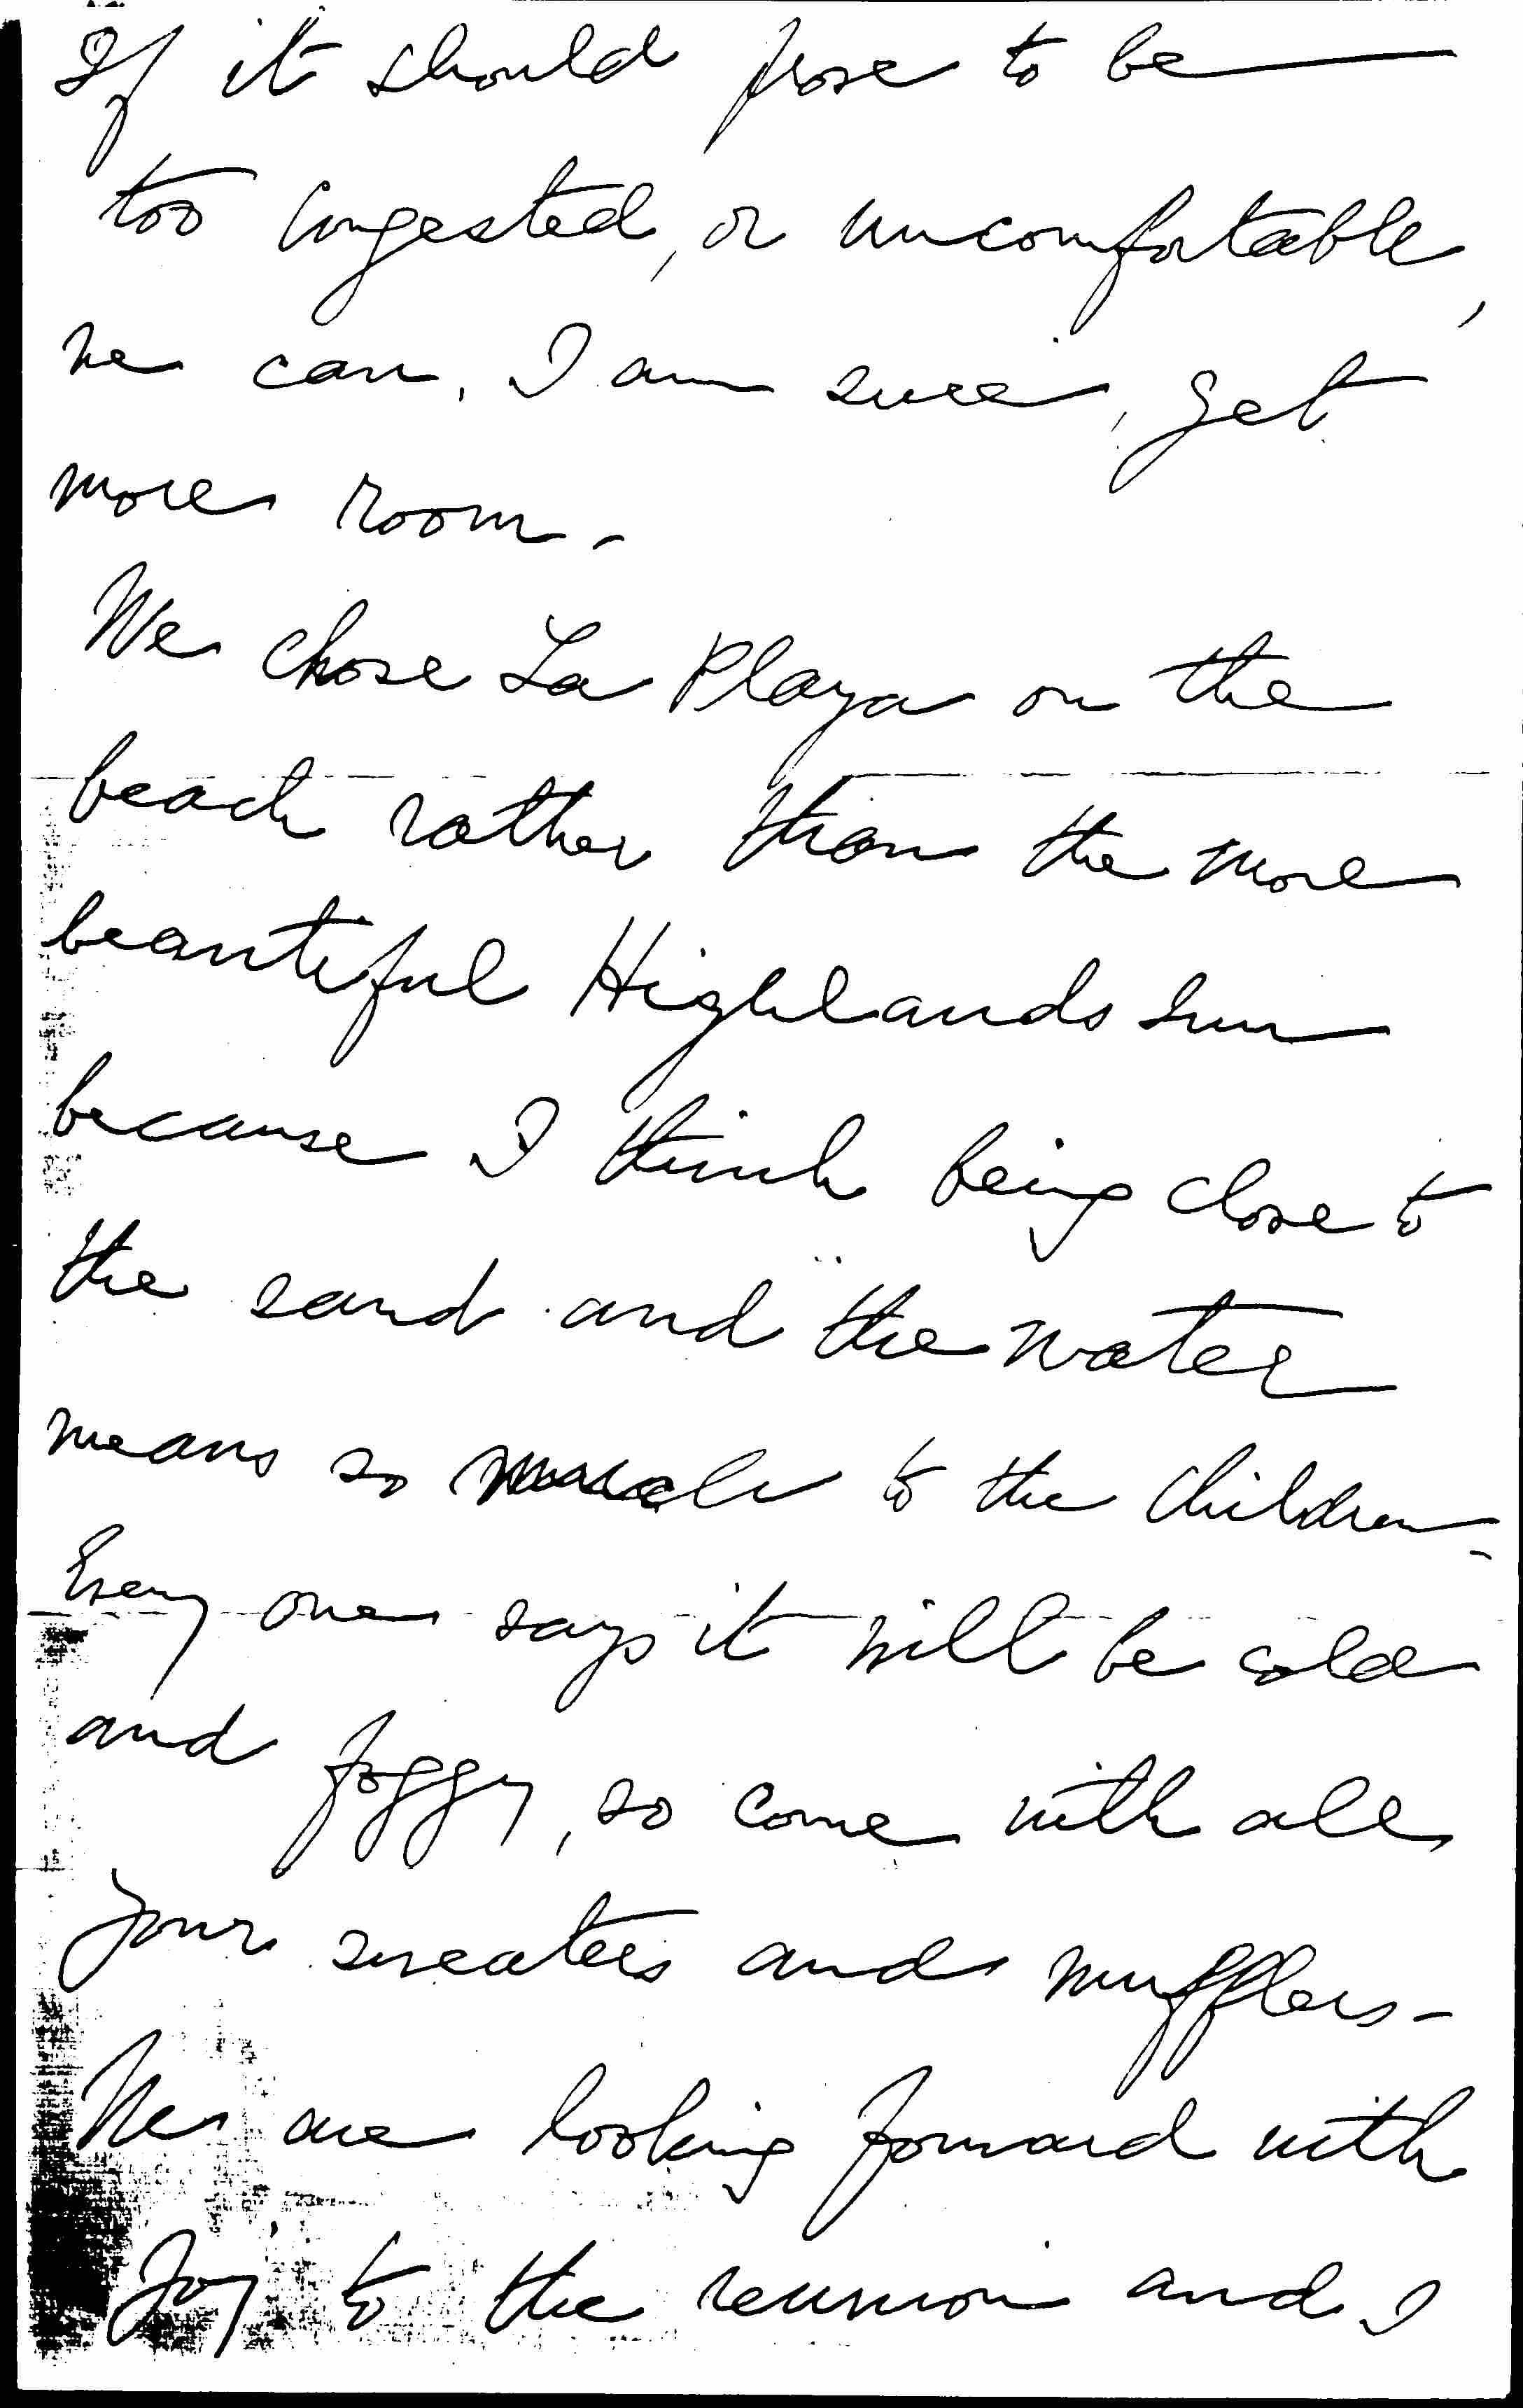 If it should prove to be
too congested, or uncomfortable,
we can, I am sure, get
more room -
We chose La Playa on the
beach rather than the more
beautiful Highlands Inn
because I think being close to
the sand and the water
means so much to the children -
Every one says it will be cold
and foggy, so come with all
your sweaters and mufflers -
We are looking forward with
joy to the reunion and I